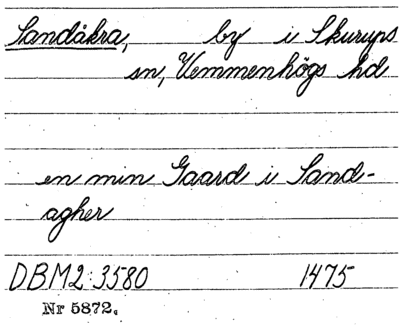 Sandåkra, by i Skurups
sn, Vemmenhögs hd
en min Gaard i Sand-
agher
DBM2:3580 1475
Nr 5872.